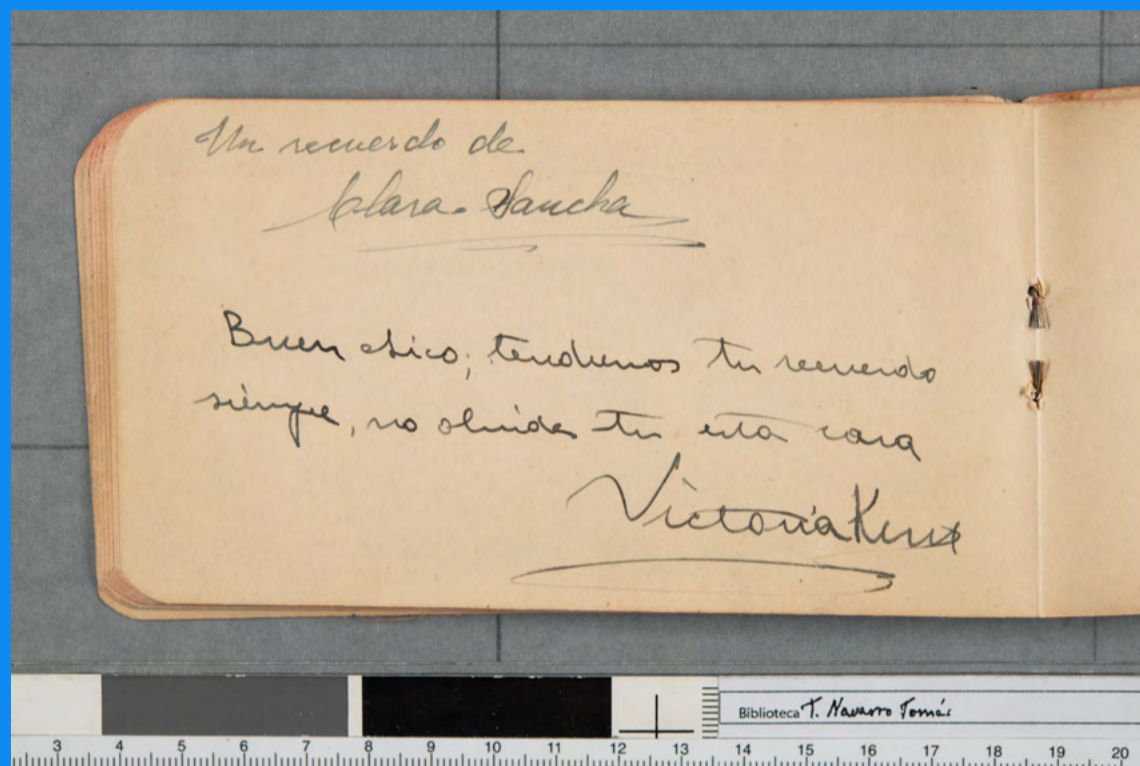 Un recuerdo de
Clara Sancha
Buen chico; tendremos tu recuerdo
siempre, no olvides tu esta casa
Victoria Kent
Biblioteca T. Navarro Tomás
3 4 5 6 7 8 9 10 11 12 13 14 15 16 17 18 19 20